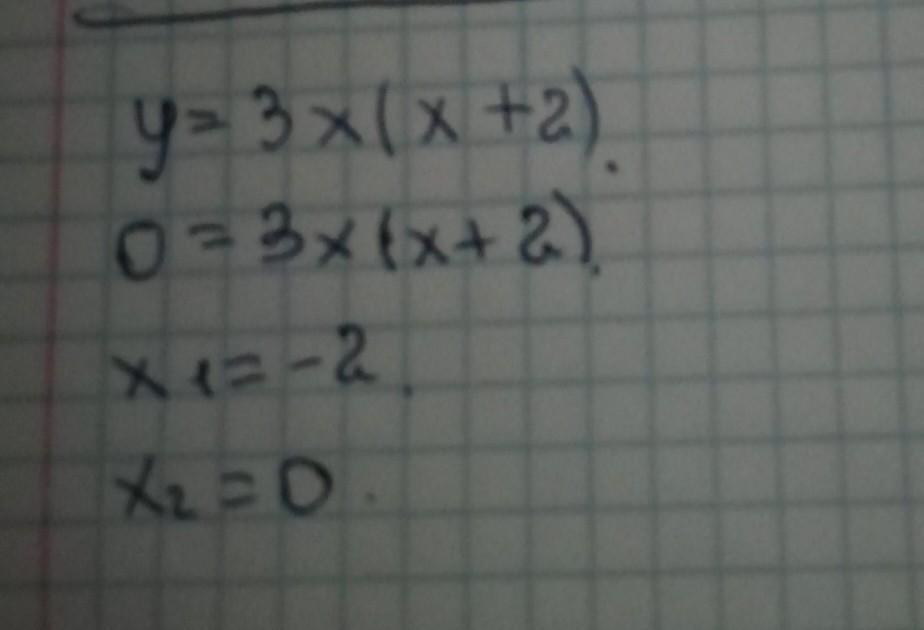 y = 3x(x + 2).
0 = 3x(x + 2).
x₁ = -2.
x₂ = 0.